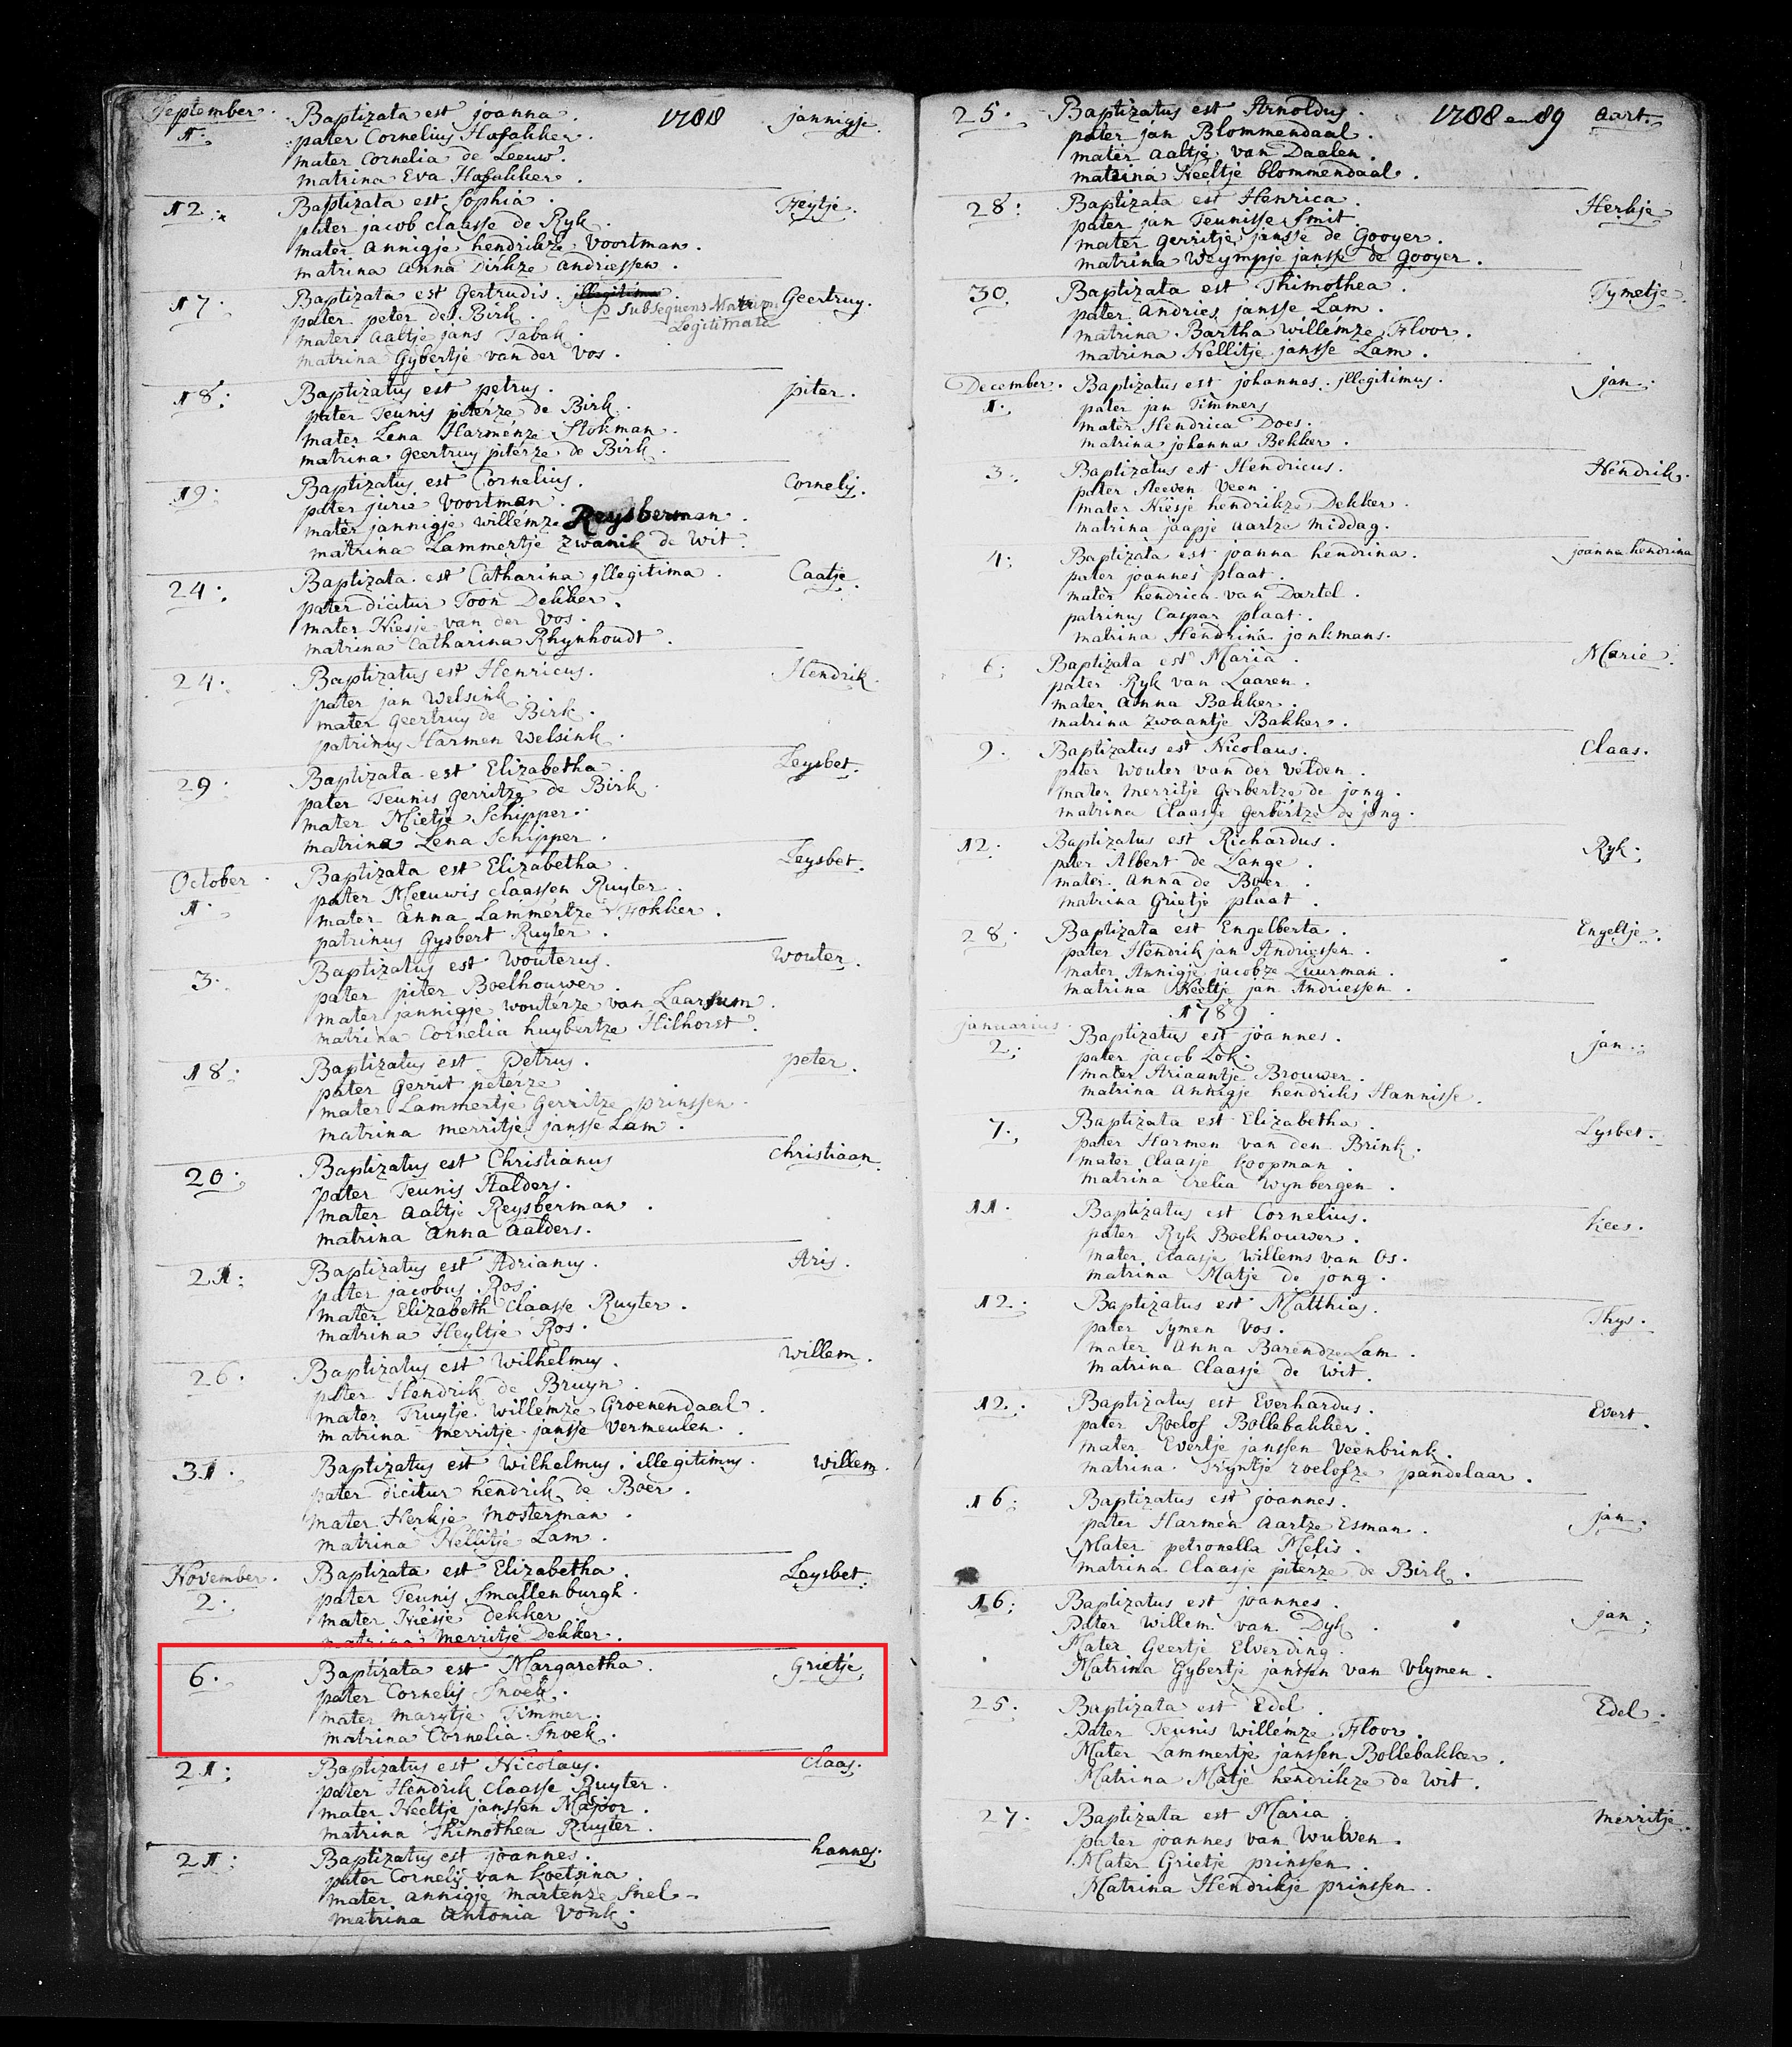 September. Baptizata est joanna. 1788 jannigje.
1. pater Cornelius Hafakker.
mater Cornelia de Leeuw.
matrina Eva Hafakker.
12. Baptizata est Sophia. Feytje.
pater jacob claasse de Ryk.
mater Annigje hendrikze Voortman.
matrina Anna Dirkze Andriessen.
17. Baptizata est Gertrudis. illegitima Geertruy.
p subsequens Matrim
Legitimata
pater peter de Birk.
mater Aaltje jans Tabak.
matrina Gybertje van der Vos.
18. Baptizatus est petrus. piter.
pater Teunis piterze de Birk.
mater Lena Harmenze Stokman.
matrina Geertruy piterze de Birk.
19. Baptizatus est Cornelius. Cornelij.
pater jurie Voortman.
mater jannigje willemze Reysberman.
matrina Lammertje Zwanik de Wit.
24. Baptizata est Catharina illegitima. Caatje.
pater dicitur Toon Dekker.
mater Niesje van der Vos.
matrina Catharina Rhynhoudt.
24. Baptizatus est Henricus. Hendrik.
pater jan Welsink.
mater Geertruy de Birk.
patrinus Harmen Welsink.
29. Baptizata est Elizabetha. Leysbet.
pater Teunis Gerritze de Birk.
mater Mietje Schipper.
matrina Lena Schipper.
October. Baptizata est Elizabetha. Leysbet.
1. pater Meeuwis claassen Ruyter.
mater Anna Lammertze Fokker.
patrinus Gysbert Ruyter.
3. Baptizatus est Wouterus. Wouter.
pater piter Boelhouwer.
mater jannigje wouterze van Laarsum.
matrina Cornelia huybertze Hilhorst.
18. Baptizatus est Petrus. peter.
pater Gerrit peterze
mater Lammertje Gerritze prinssen.
matrina merritje jansse Lam.
20. Baptizatus est Christianus christiaan.
pater Teunis Aalders.
mater Aaltje Reysberman.
matrina Anna Aalders.
21. Baptizatus est Adrianus. Aris.
pater jacobus Ros.
mater Elizabeth Claasse Ruyter.
matrina Heyltje Ros.
26. Baptizatus est Wilhelmus. willem.
pater Hendrik de Bruyn.
mater Truytje willemze Groenendaal.
matrina merritje jansse Vermeulen.
31. Baptizatus est Wilhelmus. illegitimus. willem.
pater dicitur hendrik de Boer.
mater Herkje Mosterman.
matrina Nellitje Lam.
November. Baptizata est Elizabetha. Leysbet.
2. pater Teunis Smallenburgh.
mater Niesje Dekker
matrina Merritje Dekker.
6. Baptizata est Margaretha. Grietje.
pater Cornelis Snoek.
mater Marytje Timmer.
matrina Cornelia Snoek.
21. Baptizatus est Nicolaus. claas.
pater Hendrik Claasse Ruyter.
mater Neeltje janssen Majoor.
matrina Thimothea Ruyter.
21. Baptizatus est joannes. hannes.
pater Cornelij van Koetsina
mater Annigje martenze Snel.
matrina Antonia Vonk.
25. Baptizatus est Arnoldus. 1788 en 89 Aart.
pater jan Blommendaal.
mater Aaltje van Daalen.
matrina Neeltje blommendaal.
28. Baptizata est Henrica. Herkje.
pater jan Teunisse Smit.
mater Gerritje jansse de Gooyer.
matrina Weympje jansse de Gooyer.
30. Baptizata est Thimothea. Tymetje.
pater Andries jansse Lam.
matrina Bartha willemze Floor.
matrina Nellitje jansse Lam.
December. Baptizatus est johannes. illegitimus. jan.
1. pater jan Timmers
mater Hendrica Does.
matrina johanna Bekker.
3. Baptizatus est Hendricus. Hendrik.
pater Steeven Veen.
mater Niesje hendrikze Dekker.
matrina jaapje Aartze middag.
4. Baptizata est joanna hendrina. joanna hendrina
pater joannes plaat.
mater hendrica van Dartel.
patrinus Caspar plaat.
matrina Hendrina jonkmans.
6. Baptizata est Maria. Marie.
pater Ryk van Laaren.
mater Anna Bakker.
matrina Zwaantje Bakker.
9. Baptizatus est Nicolaus. Claas.
pater Wouter van der Velden.
mater Merritje Gerbertze de jong.
matrina Claasje Gerbertze de jong.
12. Baptizatus est Richardus. Ryk.
pater Albert de Lange.
mater Anna de Boer.
matrina Grietje plaat.
28. Baptizata est Engelberta. Engeltje.
pater Hendrik jan Andriessen.
mater Annigje jacobze Luurman.
matrina Neeltje jan Andriessen.
1789
januarius. Baptizatus est joannes. jan.
2. pater jacob Lok.
mater Ariaantje Brouwer.
matrina Annigje hendriks Hannisse.
7. Baptizata est Elizabetha. Lysbet.
pater Harmen van den Brink.
mater Claasje Koopman.
matrina Crelia Wynbergen.
11. Baptizatus est Cornelius. Kees.
pater Ryk Boelhouwer.
mater Claasje Willems van Os.
matrina Matje de jong.
12. Baptizatus est Matthias. Thys.
pater Symen Vos.
mater Anna Barendze Lam.
matrina Claasje de Wit.
12. Baptizatus est Everhardus. Evert.
pater Roelof Bollebakker.
mater Evertje janssen Veenbrink.
matrina Tryntje roelofze pandelaar.
16. Baptizatus est joannes. jan.
pater Harmen Aartze Esman.
Mater petronella Melis.
matrina Claasje piterze de Birk.
16. Baptizatus est joannes. jan.
Pater Willem van Dyk.
Mater Geertje Elverding.
Matrina Gybertje janssen van Vlymen.
25. Baptizata est Edel. Edel.
Pater Teunis Willemze Floor.
Mater Lammertje janssen Bollebakker.
Matrina Matje hendrikze de Wit.
27. Baptizata est Maria. Merritje.
pater joannes van Wulven.
Mater Grietje prinssen.
Matrina Hendrikje prinssen.